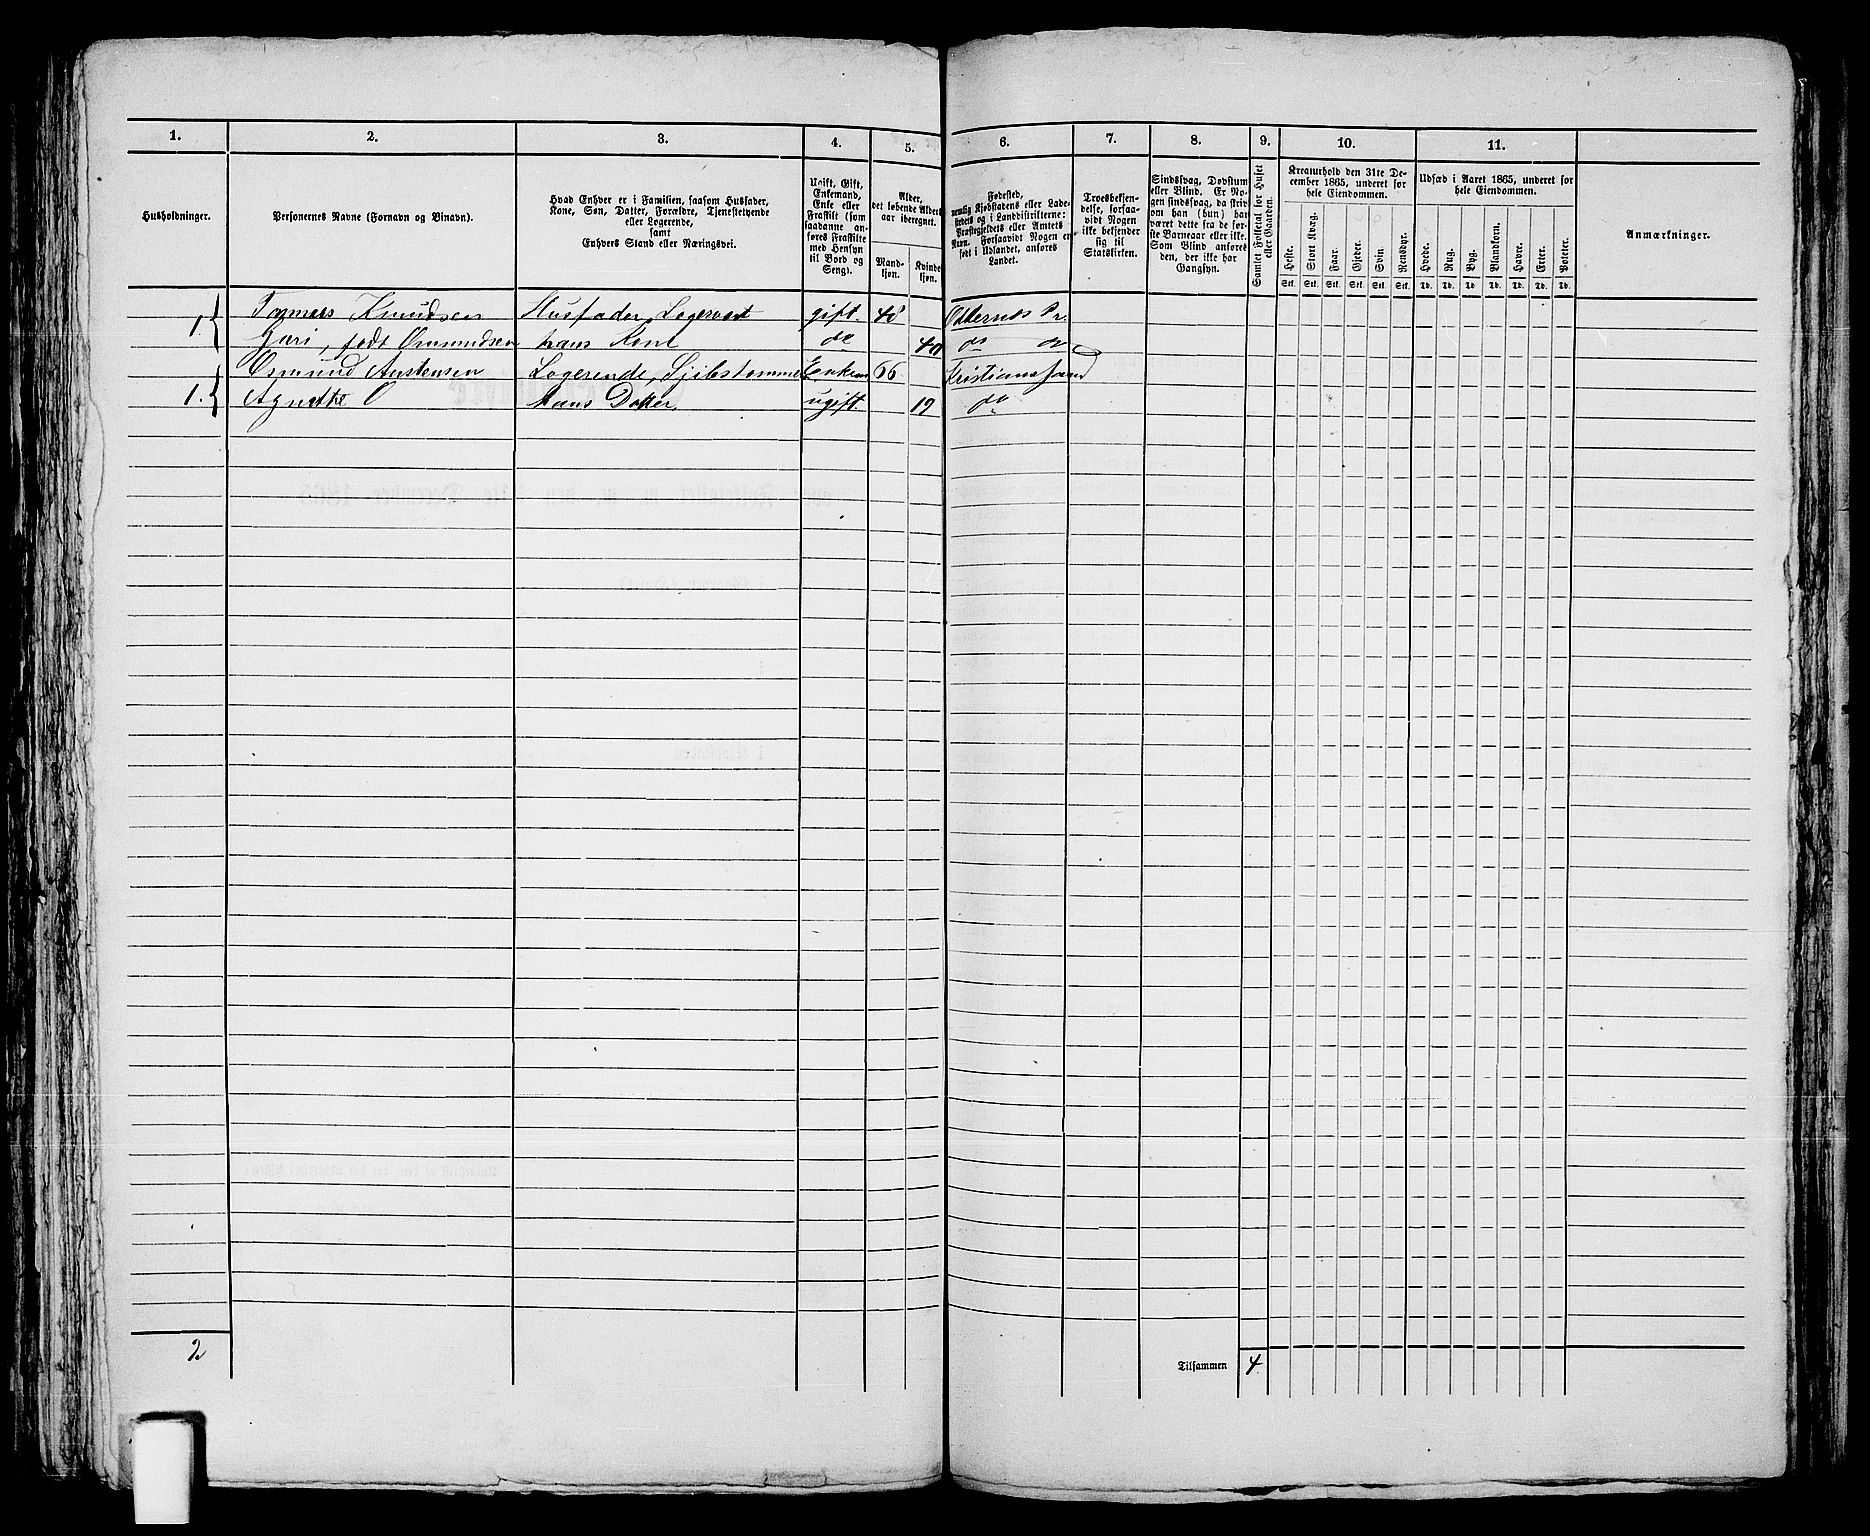 1. 2. 3. 4. 5. 6. 7. 8. 9. 10. 11.
Husholdninger.
Personernes Navne (Fornavn og Binavn).
Hvad Enhver er i Familien, saasom Husfader,
Kone, Søn, Datter, Forældre, Tjenestetyende
eller Logerende,
samt
Enhvers Stand eller Næringsvei.
Ugift, Gift,
Enkemand,
Enke eller
Fraskilt (som
saadanne an-
føres Fraskilte
med Hensyn
til Bord og
Seng).
Alder,
det løbende Alders-
aar iberegnet.
Mand-
kjøn.
Kvinde-
kjøn.
Fødested,
nemlig Kjøbstadens eller Lade-
stedets og i Landdistrikterne:
Præstegjeldets eller Amtets
Navn. Forsaavidt Nogen er
født i Udlandet, anføres
Landet.
Troesbekjen-
delse, forsaa-
vidt Nogen
ikke bekjender
sig til
Statskirken.
Sindssvag, Døvstum
eller Blind. Er No-
gen sindssvag, da skriv
om han (hun) har
været dette fra de før-
ste Barneaar eller ikke.
Som Blind anføres
den, der ikke har
Gangsyn.
Samlet Folketal for Huset
eller Gaarden.
Kreaturhold den 31te De-
cember 1865, underet for
hele Eiendommen.
Heste. Stort Kvæg. Faar. Gjeder. Svin. Rensdyr.
Stk. Stk. Stk. Stk. Stk. Stk.
Udsæd i Aaret 1865, underet for
hele Eiendommen.
Hvede. Rug. Byg. Blandkorn. Havre. Erter. Poteter.
Td. Td. Td. Td. Td. Td. Td.
Anmærkninger.
1 Knudsen Husfader, gift. 48 Oddernes Pr.
Guri, født Osmundsen hans Kone do 40 do do
Osmund Austensen Logerende, Enkem 66 Kristianssand
1. Agnethe O hans Datter. ugift. 19 do
2 Tilsammen 4